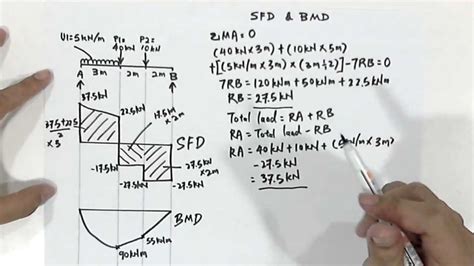 SFD & BMD
U1=5kN/m
P1=
40kN
P2=
10kN
3m
2m
2m
A
B
37.5kN
22.5kN
17.5kN
x 2m
37.5+22.5
2
x 3
SFD
-17.5kN
-17.5kN
-27.5kN
-27.5kN
-27.5kN
x 2m
BMD
90kNm
55kNm
ΣMA=0
(40kN x 3m)+(10kN x 5m)
+[(5kN/m x 3m)(3m÷2)]-7RB=0
7RB= 120kNm+50kNm+22.5kNm
RB= 27.5kN
Total load = RA + RB
RA= Total load - RB
RA= 40kN + 10kN + (5kN/m x 3m)
-27.5kN
= 37.5kN